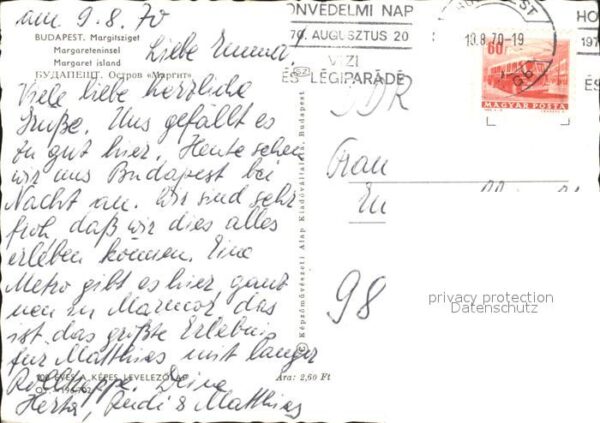 am 9.8.70
BUDAPEST. Margitsziget
Margareteninsel
Margaret island
БУДАПЕШТ. Остров «Маргит»
Liebe Emma!
Viele liebe herzliche
Grüße. Uns gefällt es
zu gut hier. Heute sehen
wir uns Budapest bei
Nacht an. Wir sind sehr
froh, daß wir dies alles
erleben können. Eine
Metro gibt es hier, ganz
neu in Marmor, das
ist das größte Erlebnis
für Matthias mit langer
Rolltreppe. Deine
Herta, Rudi & Matthias
100 ÉVES A KÉPES LEVELEZŐLAP
Ára: 2,60 Ft
© Képzőművészeti Alap Kiadóvállalata, Budapest
HONVÉDELMI NAP
1970. AUGUSZTUS 20
VIZI
ÉS LÉGIPARÁDÉ
BUDAPEST
10.8.70-19
HO
197
ÉS
60f
MAGYAR POSTA
DDR
Frau
Em
98
privacy protection
Datenschutz